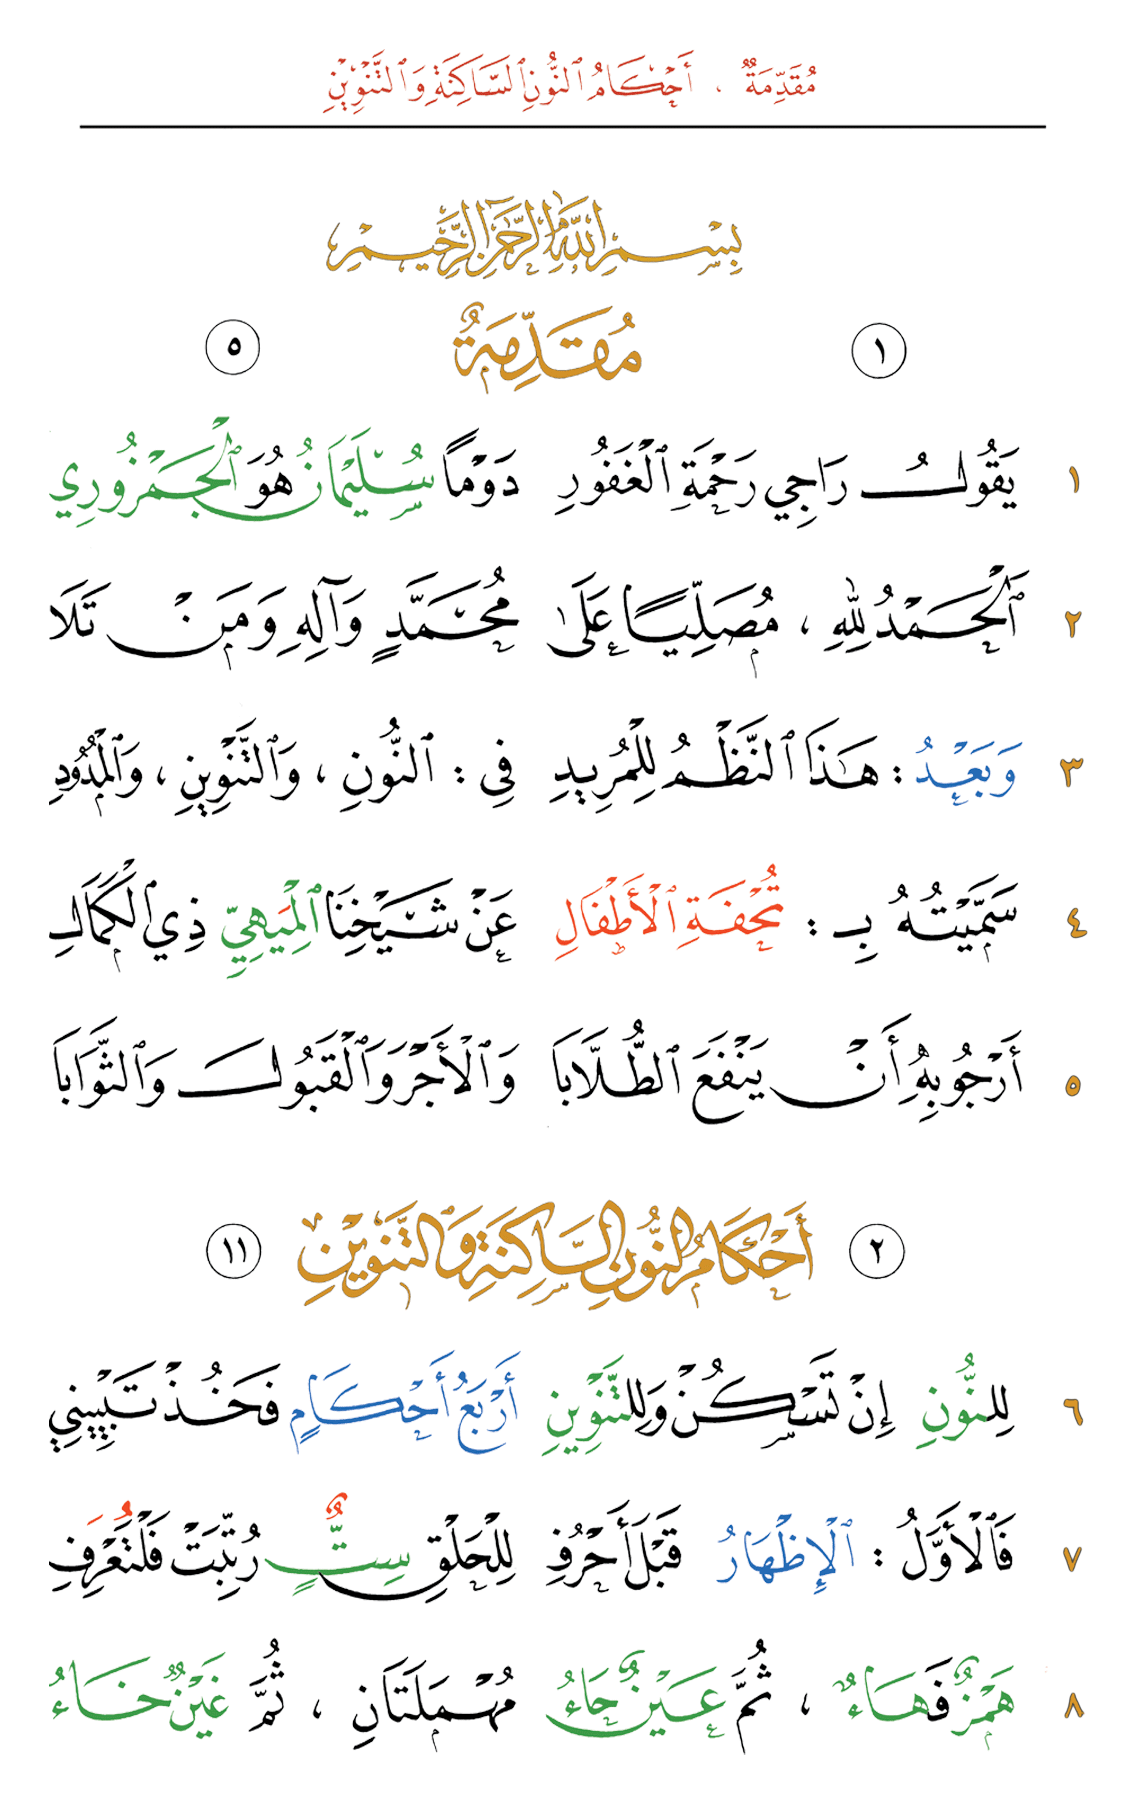 مُقَدِّمَةٌ ، أَحْكَامُ ٱلنُّونِ ٱلسَّاكِنَةِ وَٱلتَّنْوِينِ
بِسْمِ ٱللَّهِ ٱلرَّحْمَٰنِ ٱلرَّحِيمِ
١ مُقَدِّمَةٌ ٥
١ يَقُولُ رَاجِي رَحْمَةِ ٱلْغَفُورِ دَوْمًا سُلَيْمَانُ هُوَ ٱلْجَمْزُورِي
٢ ٱلْحَمْدُ لِلَّهِ ، مُصَلِّيًا عَلَىٰ مُحَمَّدٍ وَآلِهِ وَمَنْ تَلَا
٣ وَبَعْدُ : هَٰذَا ٱلنَّظْمُ لِلْمُرِيدِ فِي : ٱلنُّونِ ، وَٱلتَّنْوِينِ ، وَٱلْمُدُودِ
٤ سَمَّيْتُهُ بِـ : تُحْفَةِ ٱلْأَطْفَالِ عَنْ شَيْخِنَا ٱلْمِيهِيِّ ذِي ٱلْكَمَالِ
٥ أَرْجُو بِهِ أَنْ يَنْفَعَ ٱلطُّلَّابَا وَٱلْأَجْرَ وَٱلْقَبُولَ وَٱلثَّوَابَا
٢ أَحْكَامُ ٱلنُّونِ ٱلسَّاكِنَةِ وَٱلتَّنْوِينِ ١١
٦ لِلنُّونِ إِنْ تَسْكُنْ وَلِلتَّنْوِينِ أَرْبَعُ أَحْكَامٍ فَخُذْ تَبْيِينِي
٧ فَٱلْأَوَّلُ : ٱلْإِظْهَارُ قَبْلَ أَحْرُفِ لِلْحَلْقِ سِتٌٍّ رُتِّبَتْ فَلْتُعْرَفِ
٨ هَمْزٌ فَهَاءٌ ، ثُمَّ عَيْنٌ حَاءُ مُهْمَلَتَانِ ، ثُمَّ غَيْنٌ خَاءُ